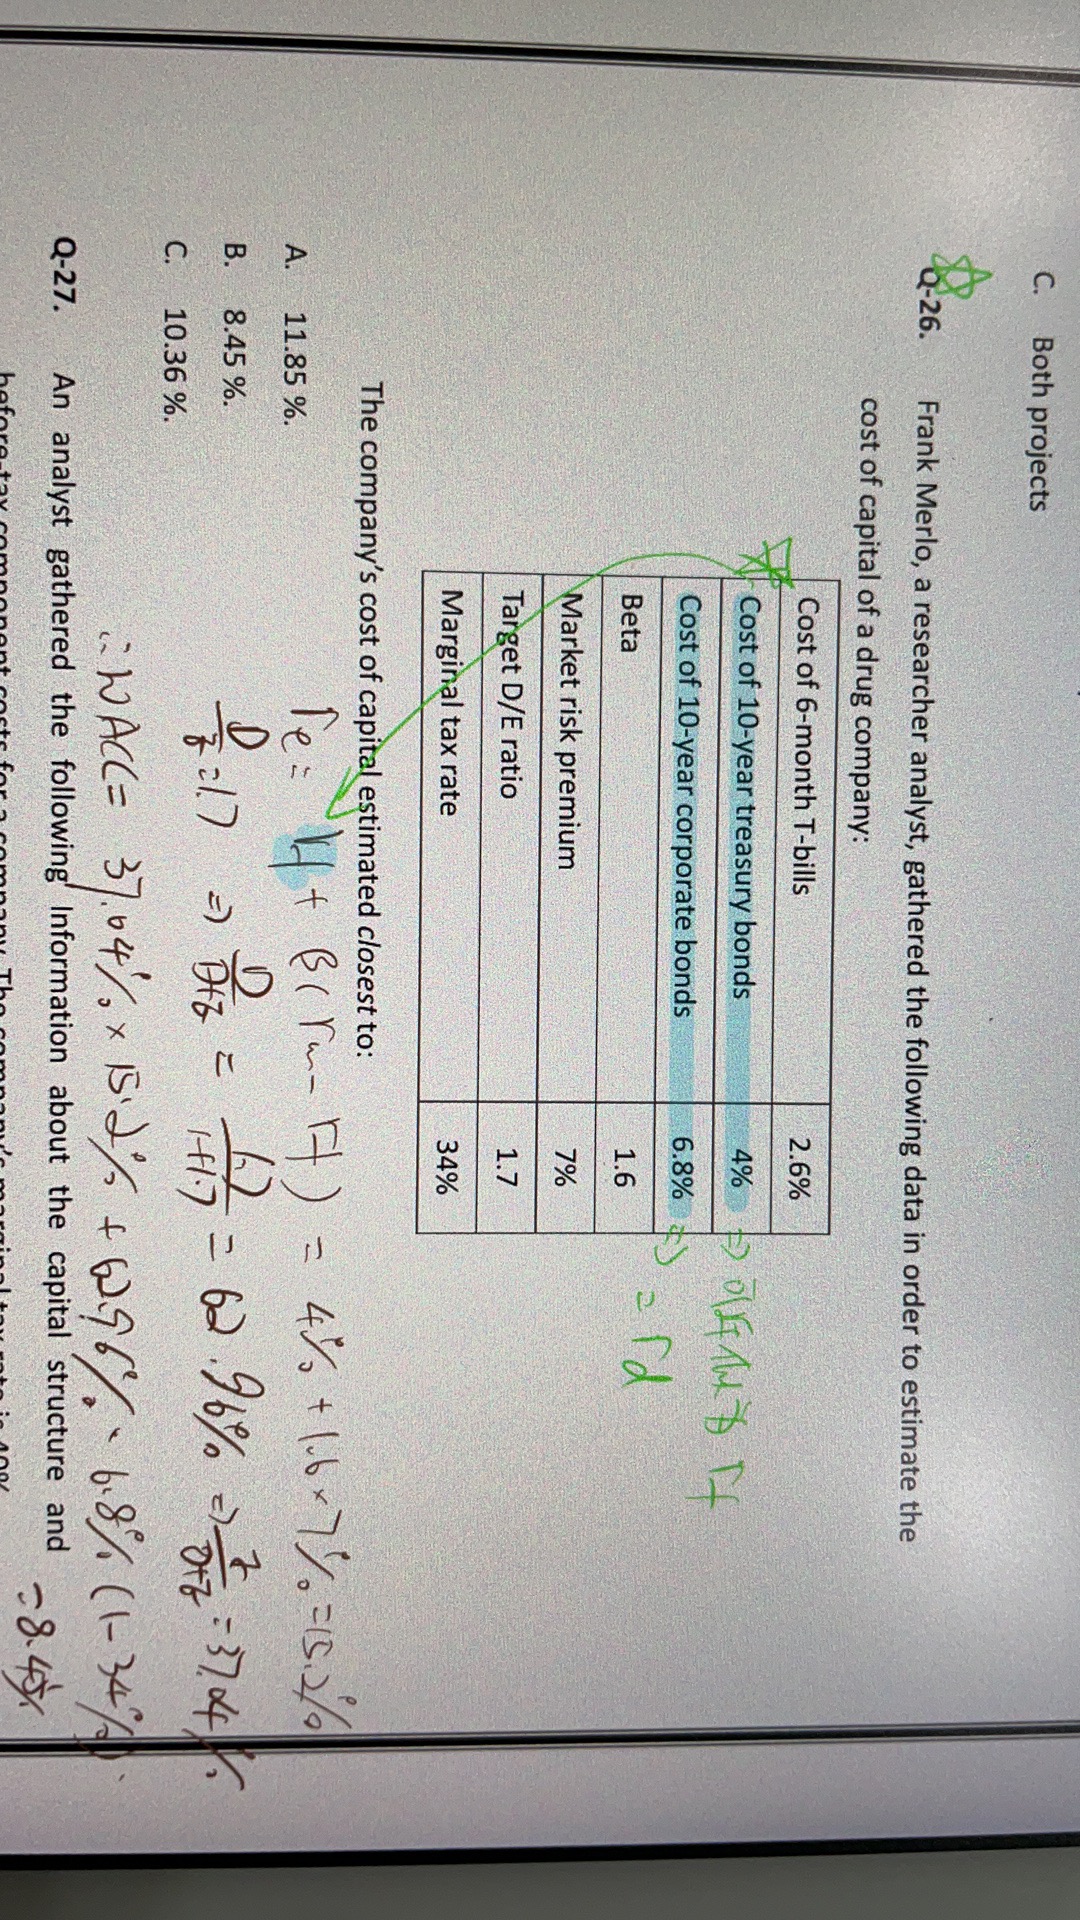 C. Both projects
Q-26. Frank Merlo, a researcher analyst, gathered the following data in order to estimate the
cost of capital of a drug company:
Cost of 6-month T-bills 2.6%
Cost of 10-year treasury bonds 4% => 可作为 rf
Cost of 10-year corporate bonds 6.8% => = rd
Beta 1.6
Market risk premium 7%
Target D/E ratio 1.7
Marginal tax rate 34%
The company's cost of capital estimated closest to:
A. 11.85 %.
B. 8.45 %.
C. 10.36 %.
re = rf + β(rm - rf) = 4% + 1.6 × 7% = 15.2%
D/E = 1.7 => D/D+E = 1.7/1+1.7 = 62.96% => E/D+E = 37.04%
∴ WACC = 37.04% × 15.2% + 62.96% × 6.8% (1-34%)
= 8.45%
Q-27. An analyst gathered the following Information about the capital structure and
before-tax component costs for a company. The company's marginal tax rate is 40%